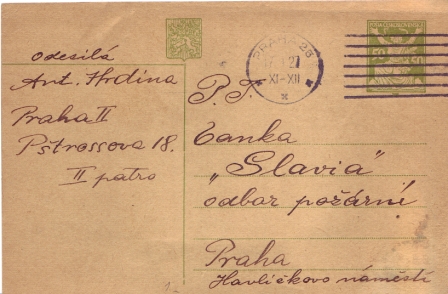 odesílá
Ant. Hrdina
Praha II
Pštrossova 18.
II patro
PRAHA 28
27
XI-XII
50
50
P. T.
banka
„Slavia"
odbor požární
Praha
Havlíčkovo náměstí